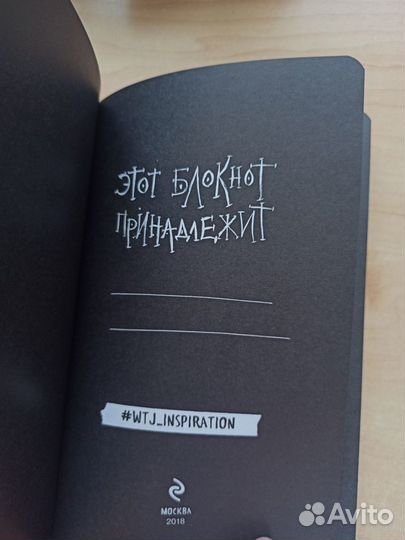 ЭТОТ БЛОКНОТ
ПРИНАДЛЕЖИТ
#WTJ_INSPIRATION
МОСКВА
2018
Avito